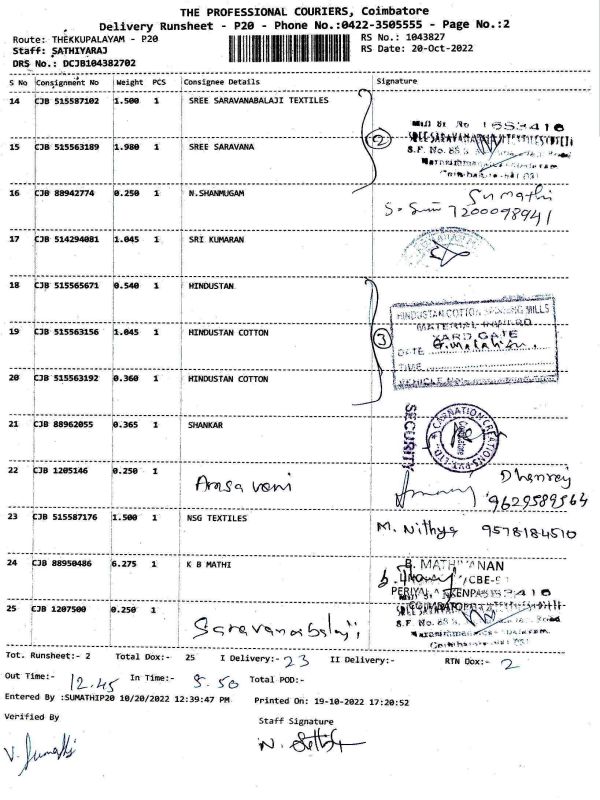 THE PROFESSIONAL COURIERS, Coimbatore
Delivery Runsheet - P20 - Phone No.:0422-3505555 - Page No.:2
Route: THEKKUPALAYAM - P20
RS No.: 1043827
Staff: SATHIYARAJ
RS Date: 20-Oct-2022
DRS No.: DCJB104382702
S No Consignment No Weight PCS Consignee Details Signature
14 CJB 515587102 1.500 1 SREE SARAVANABALAJI TEXTILES
15 CJB 515563189 1.980 1 SREE SARAVANA
2
16 CJB 88942774 0.250 1 N.SHANMUGAM
Sumathi
7200098941
17 CJB 514294081 1.045 1 SRI KUMARAN
18 CJB 515565671 0.540 1 HINDUSTAN
HINDUSTAN COTTON SPINNING MILLS
MATERIAL INWARD
19 CJB 515563156 1.045 1 HINDUSTAN COTTON
3
YARD GATE
DATE
TIME
VEHICLE No
20 CJB 515563192 0.360 1 HINDUSTAN COTTON
21 CJB 88962055 0.365 1 SHANKAR
SECURITY
CARNATION CREATIONS PVT. LTD.
22 CJB 1205146 0.250 1 Arasavani
Dhanraj
9629589564
23 CJB 515587176 1.500 1 NSG TEXTILES
M. Nithya 9578184510
24 CJB 88950486 6.275 1 K B MATHI
25 CJB 1207500 0.250 1 Saravanabalaji
Tot. Runsheet:- 2 Total Dox:- 25 I Delivery:- 23 II Delivery:- RTN Dox:- 2
Out Time:- 12.45 In Time:- 5.50 Total POD:-
Entered By :SUMATHIP20 10/20/2022 12:39:47 PM Printed On: 19-10-2022 17:20:52
Verified By
Staff Signature
V. Sumathi